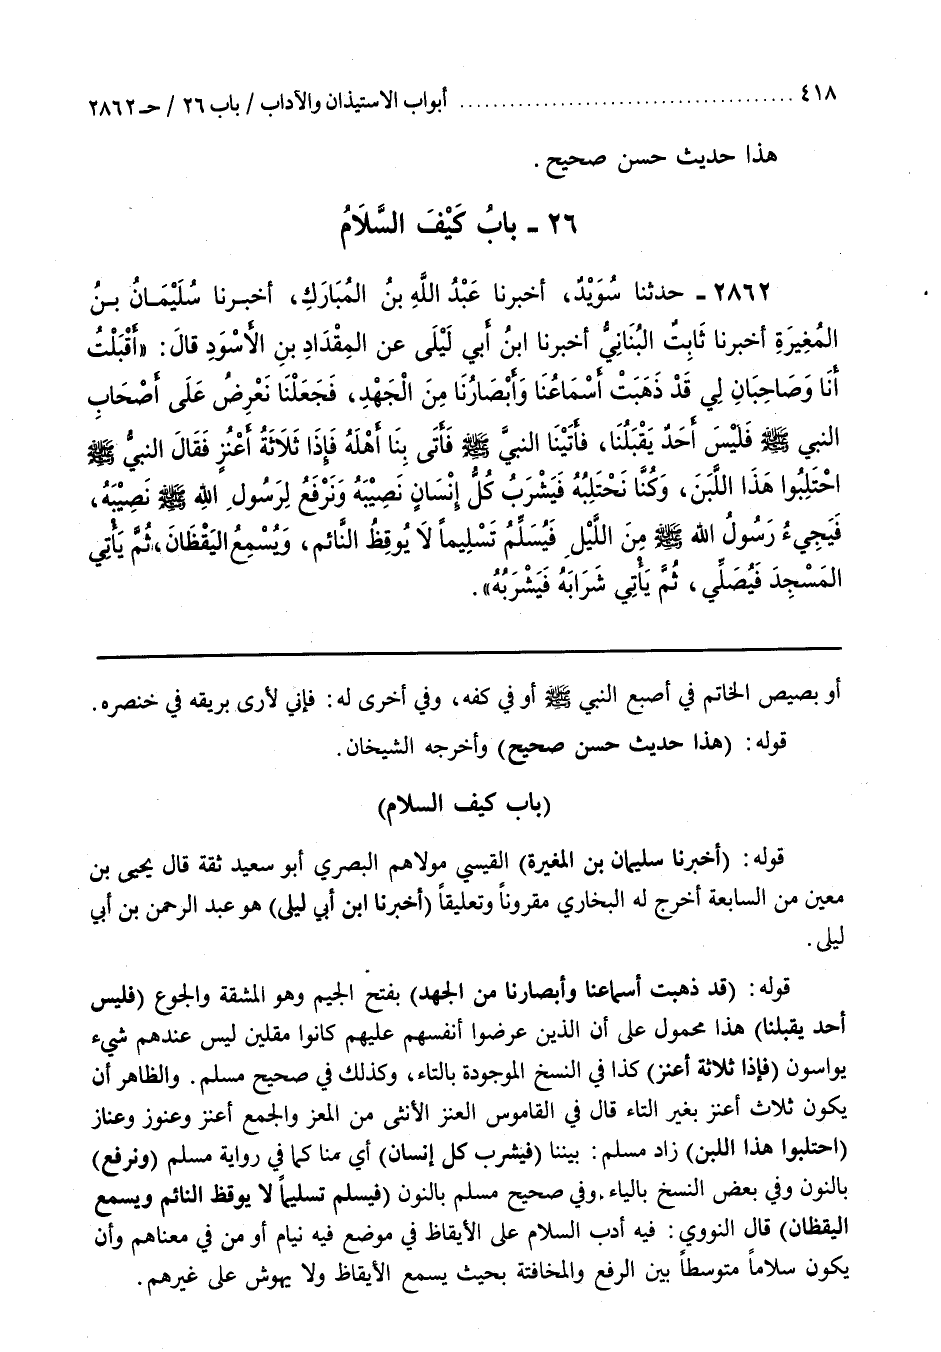 ٤١٨ ........................................ أبواب الاستيذان والآداب / باب ٢٦ / حـ ٢٨٦٢
هذا حديث حسن صحيح.
٢٦ ـ بابُ كَيْفَ السَّلَامُ
٢٨٦٢ ـ حدثنا سُوَيْدٌ، أخبرنا عَبْدُ اللَّهِ بنُ المُبَارَكِ، أخبـرنا سُلَيْمَـانُ بـنُ
المُغِيرَةِ أخبرنا ثَابِتٌ البُنَانِيُّ أخبرنا ابنُ أبي لَيْلَى عن المِقْدَادِ بنِ الأَسْوَدِ قالَ: «أَقْبَلْتُ
أنَا وَصَاحِبَانِ لِي قَدْ ذَهَبَتْ أسْمَاعُنَا وَأبْصَارُنَا مِنَ الْجَهْدِ، فَجَعَلْنَا نَعْرِضُ عَلَى أصْحَابِ
النبي ﷺ فَلَيْسَ أَحَدٌ يَقْبَلُنَا، فَأتَيْنَا النبيَّ ﷺ فَأَتَى بِنَا أهْلَهُ فَإِذَا ثَلَاثَةُ أَعْنُزٍ فَقَالَ النبيُّ ﷺ
احْتَلِبُوا هَذَا اللَّبَنَ، وَكُنَّا نَحْتَلِبُهُ فَيَشْرَبُ كُلُّ إِنْسَانٍ نَصِيْبَهُ وَنَرْفَعُ لِرَسُولِ الله ﷺ نَصِيْبَهُ،
فَيَجِيءُ رَسُولُ الله ﷺ مِنَ اللَّيْلِ فَيُسَلِّمُ تَسْلِيماً لَا يُوقِظُ النَّائم، وَيُسْمِعُ اليَقْظَانَ، ثُمَّ يَأْتِي
المَسْجِدَ فَيُصَلِّي، ثُمَّ يَأْتِي شَرَابَهُ فَيَشْرَبُهُ».
أو بصيص الخاتم في أصبع النبي ﷺ أو في كفه، وفي أخرى له: فإني لأرى بريقه في خنصره.
قوله: (هذا حديث حسن صحيح) وأخرجه الشيخان.
(باب كيف السلام)
قوله: (أخبرنا سليمان بن المغيرة) القيسي مولاهم البصري أبو سعيد ثقة قال يحيى بن
معين من السابعة أخرج له البخاري مقروناً وتعليقاً (أخبرنا ابن أبي ليلى) هو عبد الرحمن بن أبي
ليلى.
قوله: (قد ذهبت أسماعنا وأبصارنا من الجهد) بفتح الجيم وهو المشقة والجوع (فليس
أحد يقبلنا) هذا محمول على أن الذين عرضوا أنفسهم عليهم كانوا مقلين ليس عندهم شيء
يواسون (فإذا ثلاثة أعنز) كذا في النسخ الموجودة بالتاء، وكذلك في صحيح مسلم. والظاهر أن
يكون ثلاث أعنز بغير التاء قال في القاموس العنز الأنثى من المعز والجمع أعنز وعنوز وعناز
(احتلبوا هذا اللبن) زاد مسلم: بيننا (فيشرب كل إنسان) أي منا كما في رواية مسلم (ونرفع)
بالنون وفي بعض النسخ بالياء. وفي صحيح مسلم بالنون (فيسلم تسليماً لا يوقظ النائم ويسمع
اليقظان) قال النووي: فيه أدب السلام على الأيقاظ في موضع فيه نيام أو من في معناهم وأن
يكون سلاماً متوسطاً بين الرفع والمخافتة بحيث يسمع الأيقاظ ولا يهوش على غيرهم.